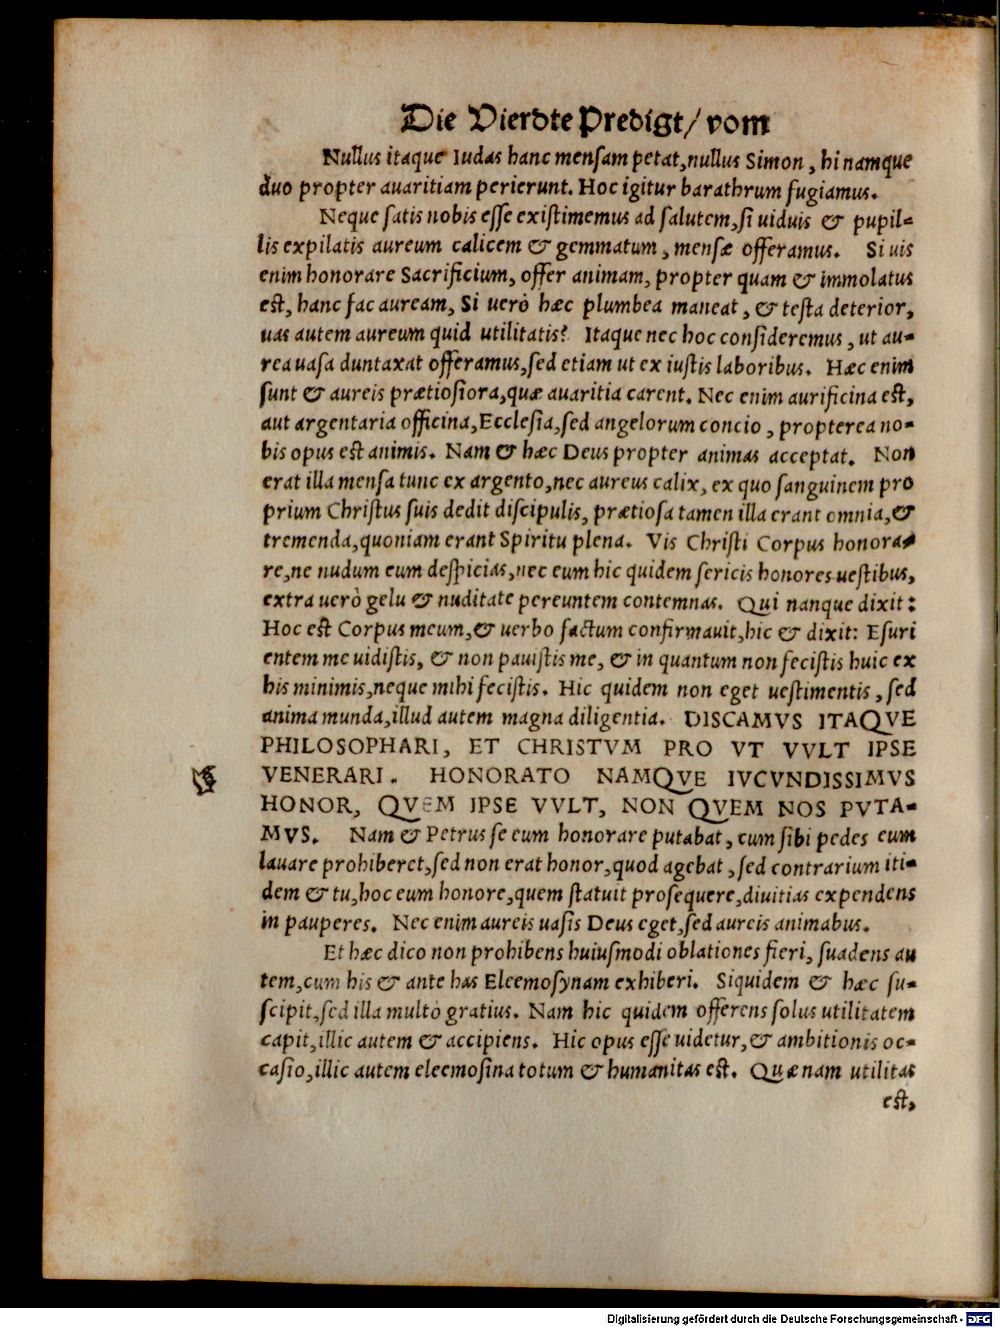 Die Vierdte Predigt/ vom
Nullus itaque Iudas hanc mensam petat, nullus Simon, hi namque
duo propter auaritiam perierunt. Hoc igitur barathrum fugiamus.
Neque satis nobis esse existimemus ad salutem, si uiduis & pupil-
lis expilatis aureum calicem & gemmatum, mensæ offeramus. Si uis
enim honorare Sacrificium, offer animam, propter quam & immolatus
est, hanc fac auream, Si uerò hæc plumbea maneat, & testa deterior,
uas autem aureum quid utilitatis? Itaque nec hoc consideremus, ut au-
rea uasa duntaxat offeramus, sed etiam ut ex iustis laboribus. Hæc enim
sunt & aureis prætiosiora, quæ auaritia carent. Nec enim aurificina est,
aut argentaria officina, Ecclesia, sed angelorum concio, propterea no-
bis opus est animis. Nam & hæc Deus propter animas acceptat. Non
erat illa mensa tunc ex argento, nec aureus calix, ex quo sanguinem pro
prium Christus suis dedit discipulis, prætiosa tamen illa erant omnia, &
tremenda, quoniam erant Spiritu plena. Vis Christi Corpus honora-
re, ne nudum eum despicias, nec eum hic quidem sericis honores uestibus,
extra uerò gelu & nuditate pereuntem contemnas. Qui nanque dixit:
Hoc est Corpus meum, & uerbo factum confirmauit, hic & dixit: Esuri
entem me uidistis, & non pauistis me, & in quantum non fecistis huic ex
his minimis, neque mihi fecistis. Hic quidem non eget uestimentis, sed
anima munda, illud autem magna diligentia. DISCAMVS ITAQVE
PHILOSOPHARI, ET CHRISTVM PRO VT VVLT IPSE
VENERARI. HONORATO NAMQVE IVCVNDISSIMVS
HONOR, QVEM IPSE VVLT, NON QVEM NOS PVTA-
MVS. Nam & Petrus se eum honorare putabat, cum sibi pedes eum
lauare prohiberet, sed non erat honor, quod agebat, sed contrarium iti-
dem & tu, hoc eum honore, quem statuit prosequere, diuitias expendens
in pauperes. Nec enim aureis uasis Deus eget, sed aureis animabus.
Et hæc dico non prohibens huiusmodi oblationes fieri, suadens au
tem, cum his & ante has Eleemosynam exhiberi. Siquidem & hæc su-
scipit, sed illa multò gratius. Nam hic quidem offerens solus utilitatem
capit, illic autem & accipiens. Hic opus esse uidetur, & ambitionis oc-
casio, illic autem eleemosina totum & humanitas est. Quænam utilitas
est,
Digitalisierung gefördert durch die Deutsche Forschungsgemeinschaft - DFG